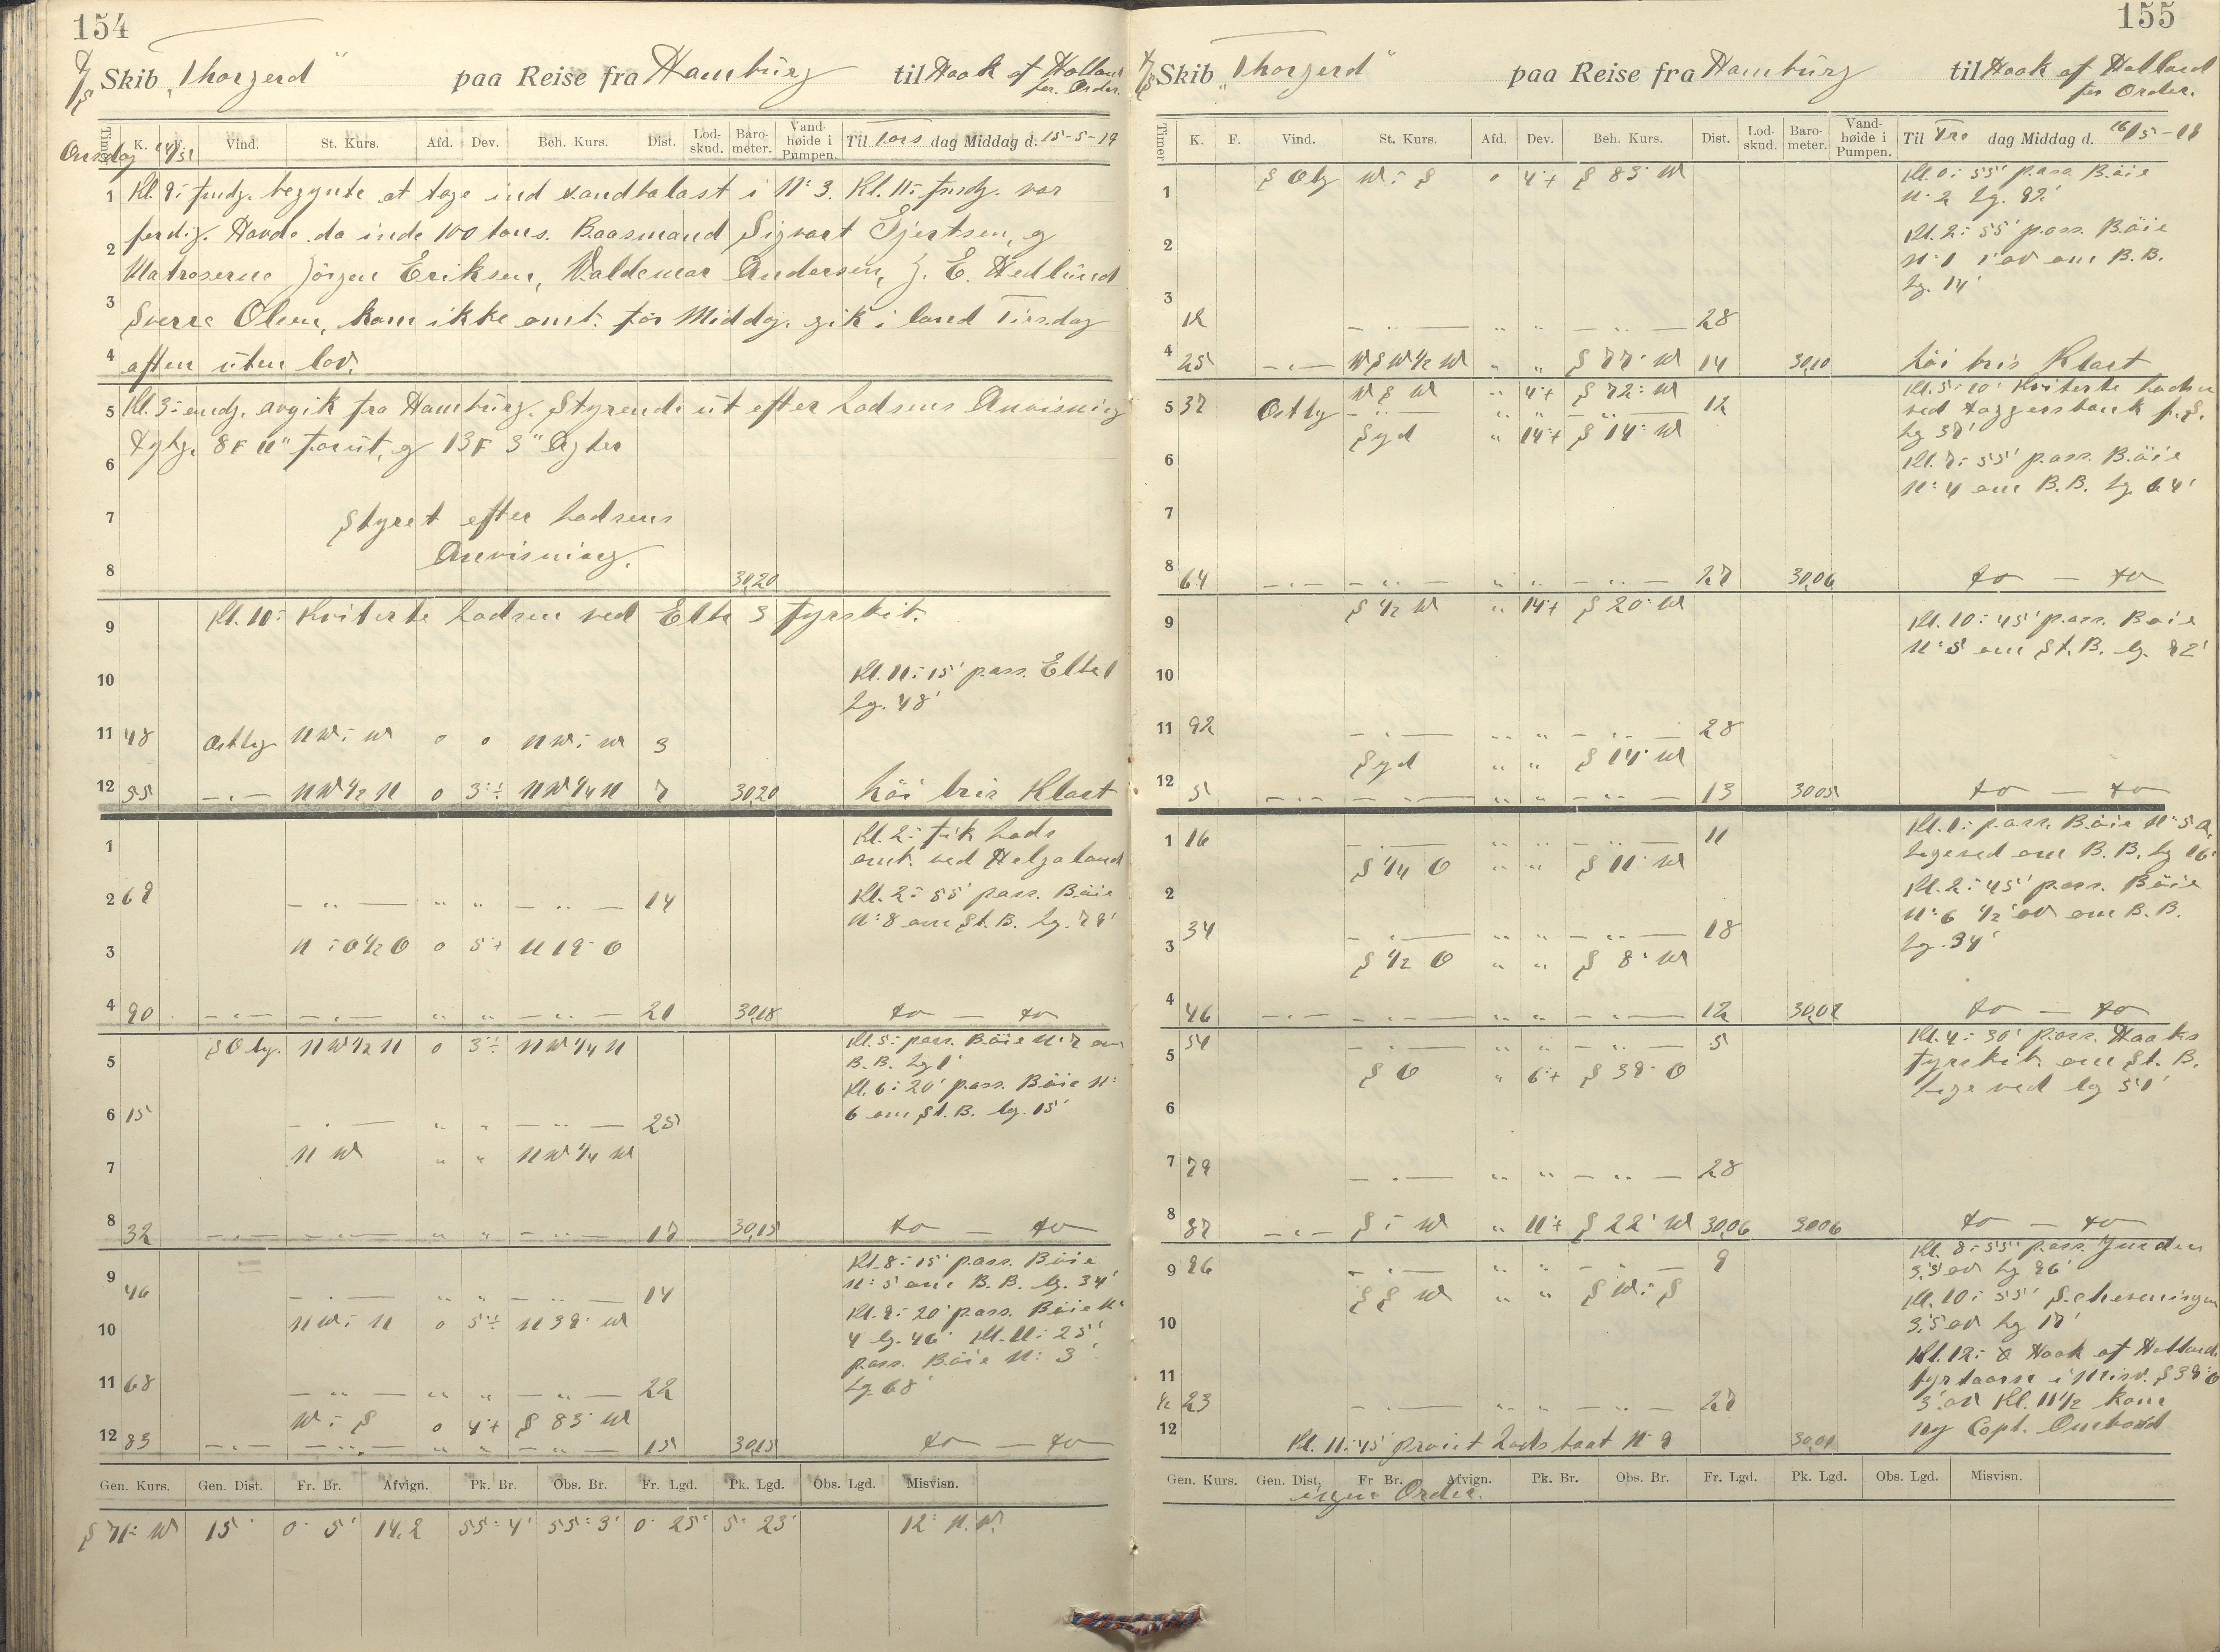 154
D/S Skib „Thorgerd" paa Reise fra Hamburg til Hook of Holland
for Order.
Timer K. F. Vind. St. Kurs. Afd. Dev. Beh. Kurs. Dist. Lod-skud. Baro-meter. Vand-høide i Pumpen. Til Tors dag Middag d. 15-5-19
Onsdag 14/5
1 Kl. 9: fmdg. begynte at tage ind sandbalast i N: 3. Kl. 11: fmdg. var
2 ferdig. Havde da inde 100 tons. Baasmand Sigvart Gjertsen, og
Matroserne Jörgen Eriksen, Valdemar Andersen, J. E. Hedlund
3 Sverre Olsen, kom ikke omb. för Middag, gik i land Tirsdag
4 aften uten lov.
5 Kl. 3: emdg. avgik fra Hamburg. Styrende ut efter Lodsens Anvisning
6 Dyvg. 8 F 11" forut, og 13 F 3" Agter
7 Styret efter Lodsens
Anvisning.
8 30,20
9 Kl. 10: Kviterte Lodsen ved Elbe 3 fyrskib.
10 Kl. 11: 15' pass. Elbe 1
Lg. 48'
11 48 Ostlig NW:W 0 0 NW:W 3
12 55 -„- NW 1/2 N 0 3°÷ NW 1/4 N 7 30,20 Löi bris Klart
1 Kl. 2: fik Lods
omb. ved Helgoland
2 69 -„- „ „ -„- 14 Kl. 2: 55' pass. Böie
N: 8 om St. B. Lg. 79'
3 N:O 1/2 O 0 5°+ N 19° O
4 90 -„- -„- „ „ -„- 21 30,18 do - do
5 SO lig. NW 1/2 N 0 3°÷ NW 1/4 N Kl. 5: pass. Böie N: 7 om
B. B. Lg 1'
Kl. 6: 20' pass. Böie N:
6 15 -„- „ „ -„- 25 6 om St. B. lg. 15'
7 NW „ „ NW 1/4 W
8 32 -„- -„- „ „ -„- 17 30,15 do - do
Kl. 8: 15' pass. Böie
9 N: 5 om B. B. lg. 34'
46 -„- „ „ -„- 14
10 NW:N 0 5°÷ N 39° W Kl. 9: 20' pass. Böie N:
4 lg. 46' Kl. 11: 25'
pass. Böie N: 3
11 68 -„- „ „ -„- 22 Lg. 68'
W:S 0 4°+ S 83° W
12 83 -„- -„- „ „ -„- 15 30,15 do - do
Gen. Kurs. Gen. Dist. Fr. Br. Afvign. Pk. Br. Obs. Br. Fr. Lgd. Pk. Lgd. Obs. Lgd. Misvisn.
S 71° W 15' 0° 5' 14,2 55° 4' 55° 3' 0° 25' 5° 23' 12° N.W.
155
D/S Skib „Thorgerd" paa Reise fra Hamburg til Hook of Holland
for Order.
Timer K. F. Vind. St. Kurs. Afd. Dev. Beh. Kurs. Dist. Lod-skud. Baro-meter. Vand-høide i Pumpen. Til Fre dag Middag d. 16/5-19
1 S O lig W:S 0 4°+ S 83° W Kl. 0: 55' pass. Böie
N: 2 Lg. 92'
2 Kl. 2: 55' pass. Böie
N: 1 1' av om B. B.
3 Lg. 14'
12 -„- „ „ -„- 28
4 25 -„- WSW 1/2 W „ „ S 77° W 14 30,10 Löi bris Klart
WSW „ 4°+ S 72° W Kl. 5: 10' Kviterte Lodsen
5 37 Ostlig -„- „ „ -„- 12 ved Doggersbank f.s.
Syd „ 14°+ S 14° W Lg 37'
6 Kl. 7: 55' pass. Böie
N: 4 om B. B. Lg. 64'
7
8 64 -„- -„- „ „ -„- 27 30,06 do - do
S 1/2 W „ 14°+ S 20° W
9 Kl. 10: 45' pass. Böie
N: 5 om St. B. lg. 92'
10
11 92 -„- „ „ -„- 28
Syd „ „ S 14° W
12 5 -„- -„- „ „ -„- 13 30,05 do - do
1 16 -„- „ „ -„- 11 Kl. 1: pass. Böie N: 5 a.
S 1/4 O „ „ S 11° W Lige ved om B. B. Lg 16'
2 Kl. 2: 45' pass. Böie
N: 6 1/2' av om B. B.
34 -„- „ „ -„- 18
3 S 1/2 O „ „ S 8° W Lg. 34'
4 46 -„- -„- „ „ -„- 12 30,07 do - do
51 -„- „ „ -„- 5 Kl. 4: 30' pass. Haaks
5 SO „ 6°+ S 39° O fyrskib. om St. B.
Lige ved lg 51'
6
7 79 -„- „ „ -„- 28
8 87 -„- S:W „ 11°+ S 22° W 30,06 30,06 do - do
Kl. 8: 55' pass. Ymuiden
9 96 -„- „ „ -„- 9 3,5' av Lg 96'
SSW „ „ SW:S Kl. 10: 55' Scheveningen
10 3,5' av Lg 17'
Kl. 12: Hook of Holland
11 fyrtaarn i Misv. S 39° O
1/2 23 -„- „ „ -„- 27 3' av Kl. 11 1/2 kom
12 Kl. 11: 45' praiet Lods baat N: 9 30,01 ny Capt. Ombord
ingen Order.
Gen. Kurs. Gen. Dist. Fr Br. Afvign. Pk. Br. Obs. Br. Fr. Lgd. Pk. Lgd. Obs. Lgd. Misvisn.